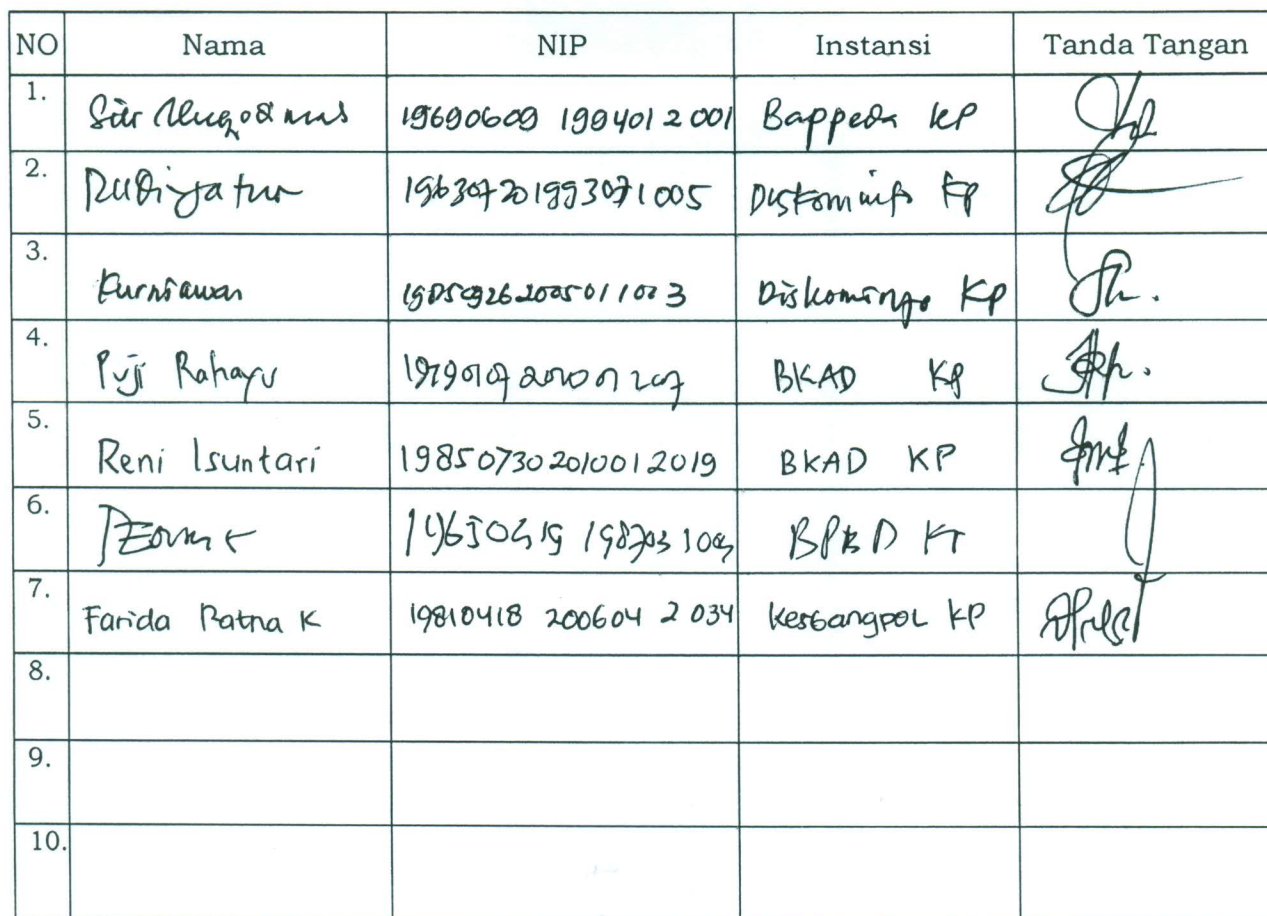 NO Nama NIP Instansi Tanda Tangan
1. 19690609 1994012001 Bappeda KP
2. Rudiyatun 196307201993071005 Diskominfo KP
3. Kurniawan 198509262005011003 Diskominfo KP
4. Puji Rahayu BKAD KP
5. Reni Isuntari 198507302010012019 BKAD KP
6. BPBD
7. Farida Ratna K 19810418 200604 2 034 Kesbangpol KP
8.
9.
10.